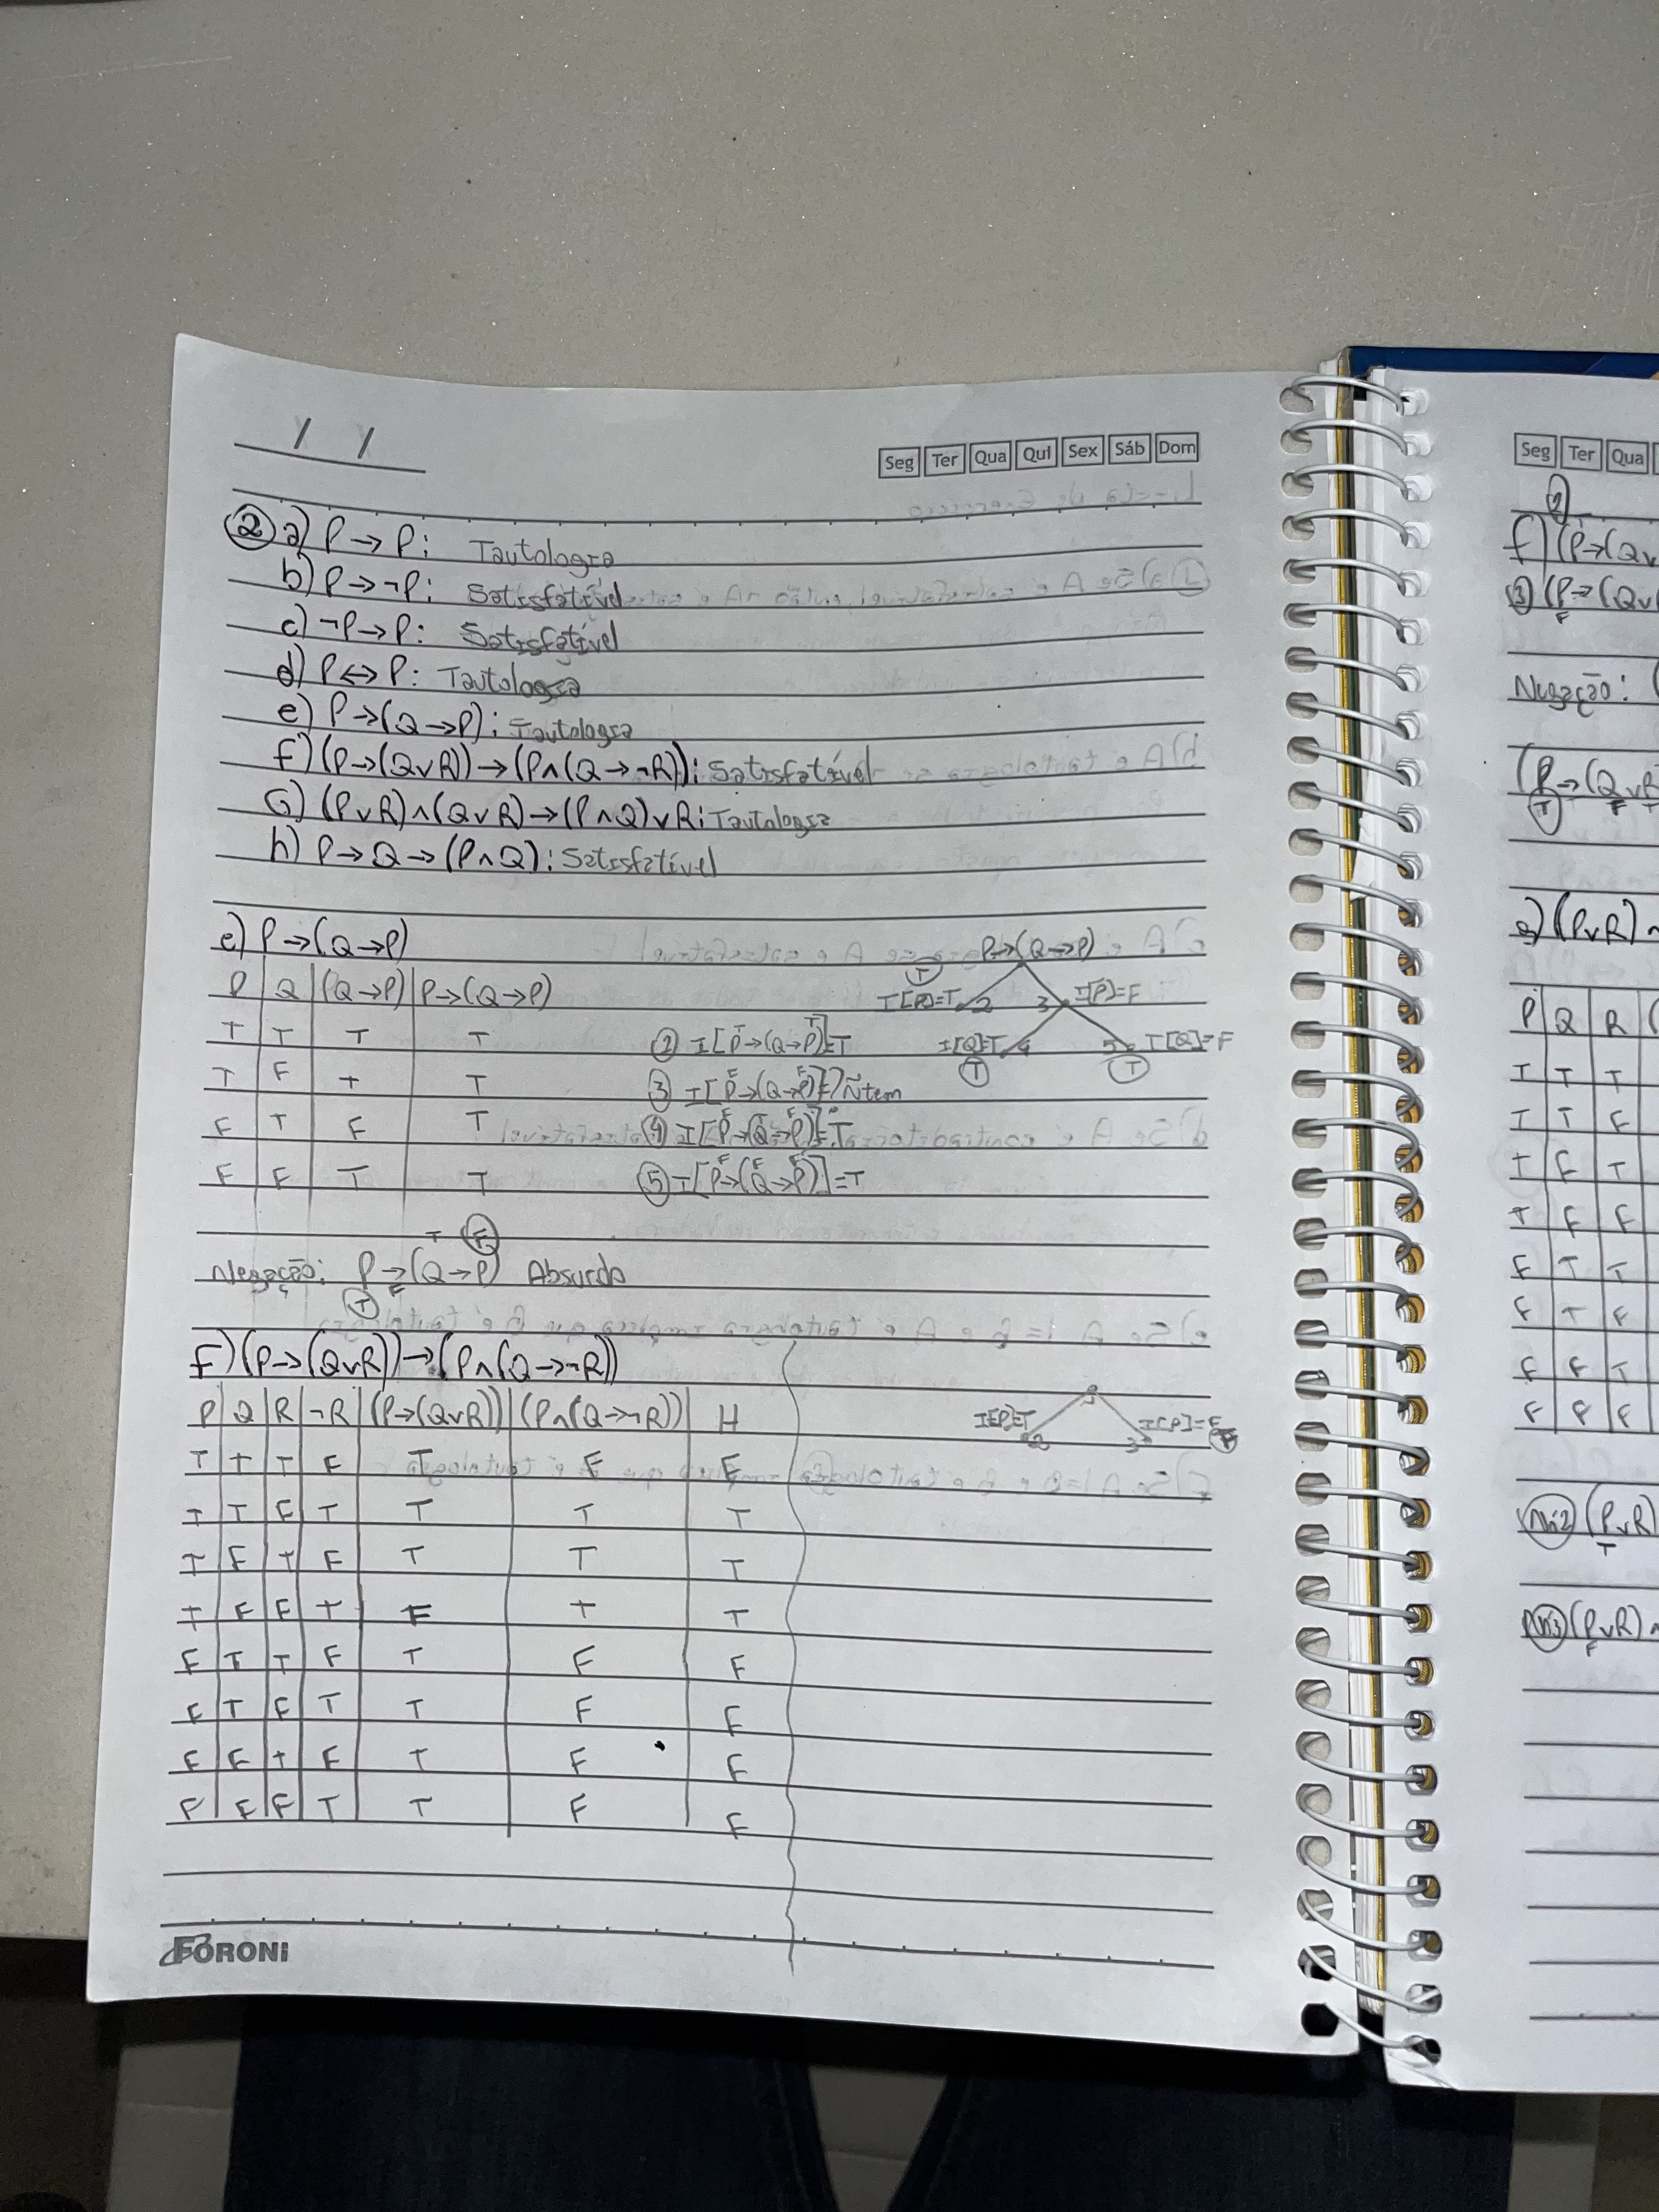 / /
Seg Ter Qua Qui Sex Sáb Dom
② a) P → P: Tautologia
b) P → ¬P: Satisfatível
c) ¬P → P: Satisfatível
d) P ↔ P: Tautologia
e) P → (Q → P): Tautologia
f) (P → (Q ∨ R)) → (P ∧ (Q → ¬R)): Satisfatível
G) (P ∨ R) ∧ (Q ∨ R) → (P ∧ Q) ∨ R: Tautologia
h) P → Q → (P ∧ Q): Satisfatível
e) P → (Q → P)
P Q (Q → P) P → (Q → P)
T T T T
T F T T
F T F T
F F T T
P → (Q → P)
T
I[P]=T 2 3 I[P]=F
I[Q]=T 4 5 I[Q]=F
T T
② I[P → (Q → P)]=T
T T
③ I[P → (Q → P)]=? Ñ tem
F F
④ I[P → (Q → P)]=T
F T F
⑤ I[P → (Q → P)]=T
F F F
T F
Negação: P → (Q → P) Absurdo
T F
F) (P → (Q ∨ R)) → (P ∧ (Q → ¬R))
P Q R ¬R (P → (Q ∨ R)) (P ∧ (Q → ¬R)) H
T T T F T F F
T T F T T T T
T F T F T T T
T F F T F T T
F T T F T F F
F T F T T F F
F F T F T F F
F F F T T F F
I[P]=T 2 3 I[P]=F
FORONI
Seg Ter Qua
f) (P → (Q ∨
③ (P → (Q ∨
F
Negação: (
(P → (Q ∨ R
T F T
g) (P ∨ R)
P Q R (
T T T
T T F
T F T
T F F
F T T
F T F
F F T
F F F
Nó2 (P ∨ R)
T
Nó3 (P ∨ R) ∧
F